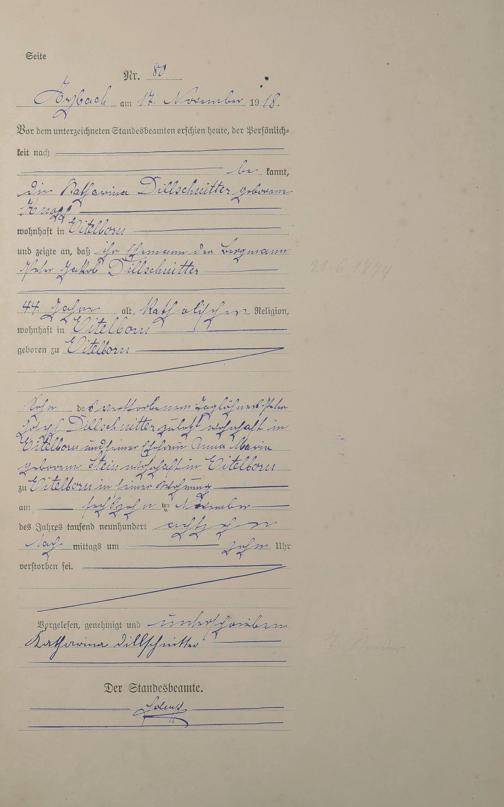 Seite
Nr. 80
am 17. November 1918.
Vor dem unterzeichneten Standesbeamten erschien heute, der Persönlich=
keit nach
be kannt,
die Katharina Dillschnitter geborene
Knopf
wohnhaft in Eitelborn
und zeigte an, daß ihr Ehemann der Bergmann
Peter Jakob Dillschnitter
44 Jahre alt, Katholischer Religion,
wohnhaft in Eitelborn
geboren zu Eitelborn
Sohn des verstorbenen Taglöhners Peter
Josef Dillschnitter zuletzt wohnhaft in
Eitelborn und seiner Ehefrau Anna Maria
geborene Stein wohnhaft in Eitelborn
zu Eitelborn in seiner Wohnung
am sechszehn ten November
des Jahres tausend neunhundert achtzehn
Nach mittags um zehn Uhr
verstorben sei.
Vorgelesen, genehmigt und unterschrieben
Katharina Dillschnitter
Der Standesbeamte.